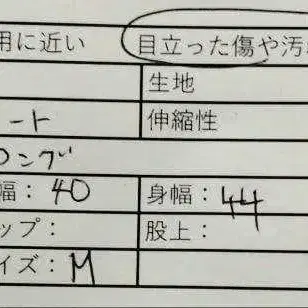 用に近い 目立った傷や汚
生地
ート 伸縮性
ロング
幅：40 身幅：44
ップ： 股上：
イズ：M